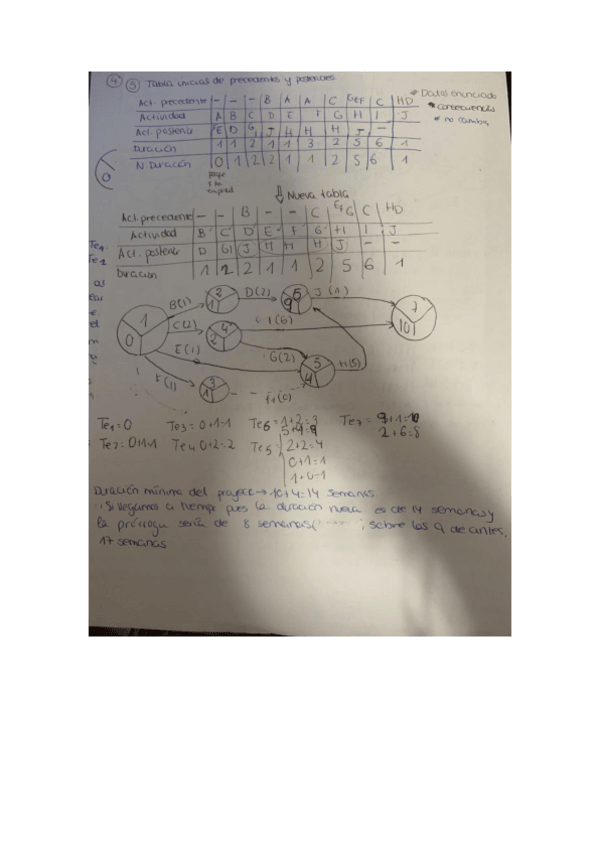 ④ ⑤ Tabla inicias de precedentes y posteriores
* Datos enunciado
* consecuencias
* no cambia
Act. precedente - - - B A A C GEF C HD
Actividad A B C D E F G H I J
Act. posterior E D G J H H H J -
Duración 1 1 2 1 1 3 2 5 6 1
N. Duración 0 1 2 2 1 1 2 5 6 1
Nueva tabla
Act. precedente - - B - - C EFG C HD
Actividad B C D E F G H I J
Act. posterior D GI J H H H J - -
Duración 1 2 2 1 1 2 5 6 1
B(1) D(2) J(1)
C(2) I(6)
E(1) G(2) H(5)
F(1) f1(0)
1 0
2 1
3 1
4 2
5 4
6 9
7 10
Te1=0 Te3=0+1=1 Te6=1+2=3 Te7=9+1=10
5+4=9 2+6=8
Te2=0+1=1 Te4 0+2=2 Te5 2+2=4
0+1=1
1+0=1
Duración mínima del proyecto → 10+4=14 semanas
Si llegamos a tiempo pues la duración nueva es de 14 semanas y
la prórroga sería de 8 semanas sobre las 9 de antes,
17 semanas